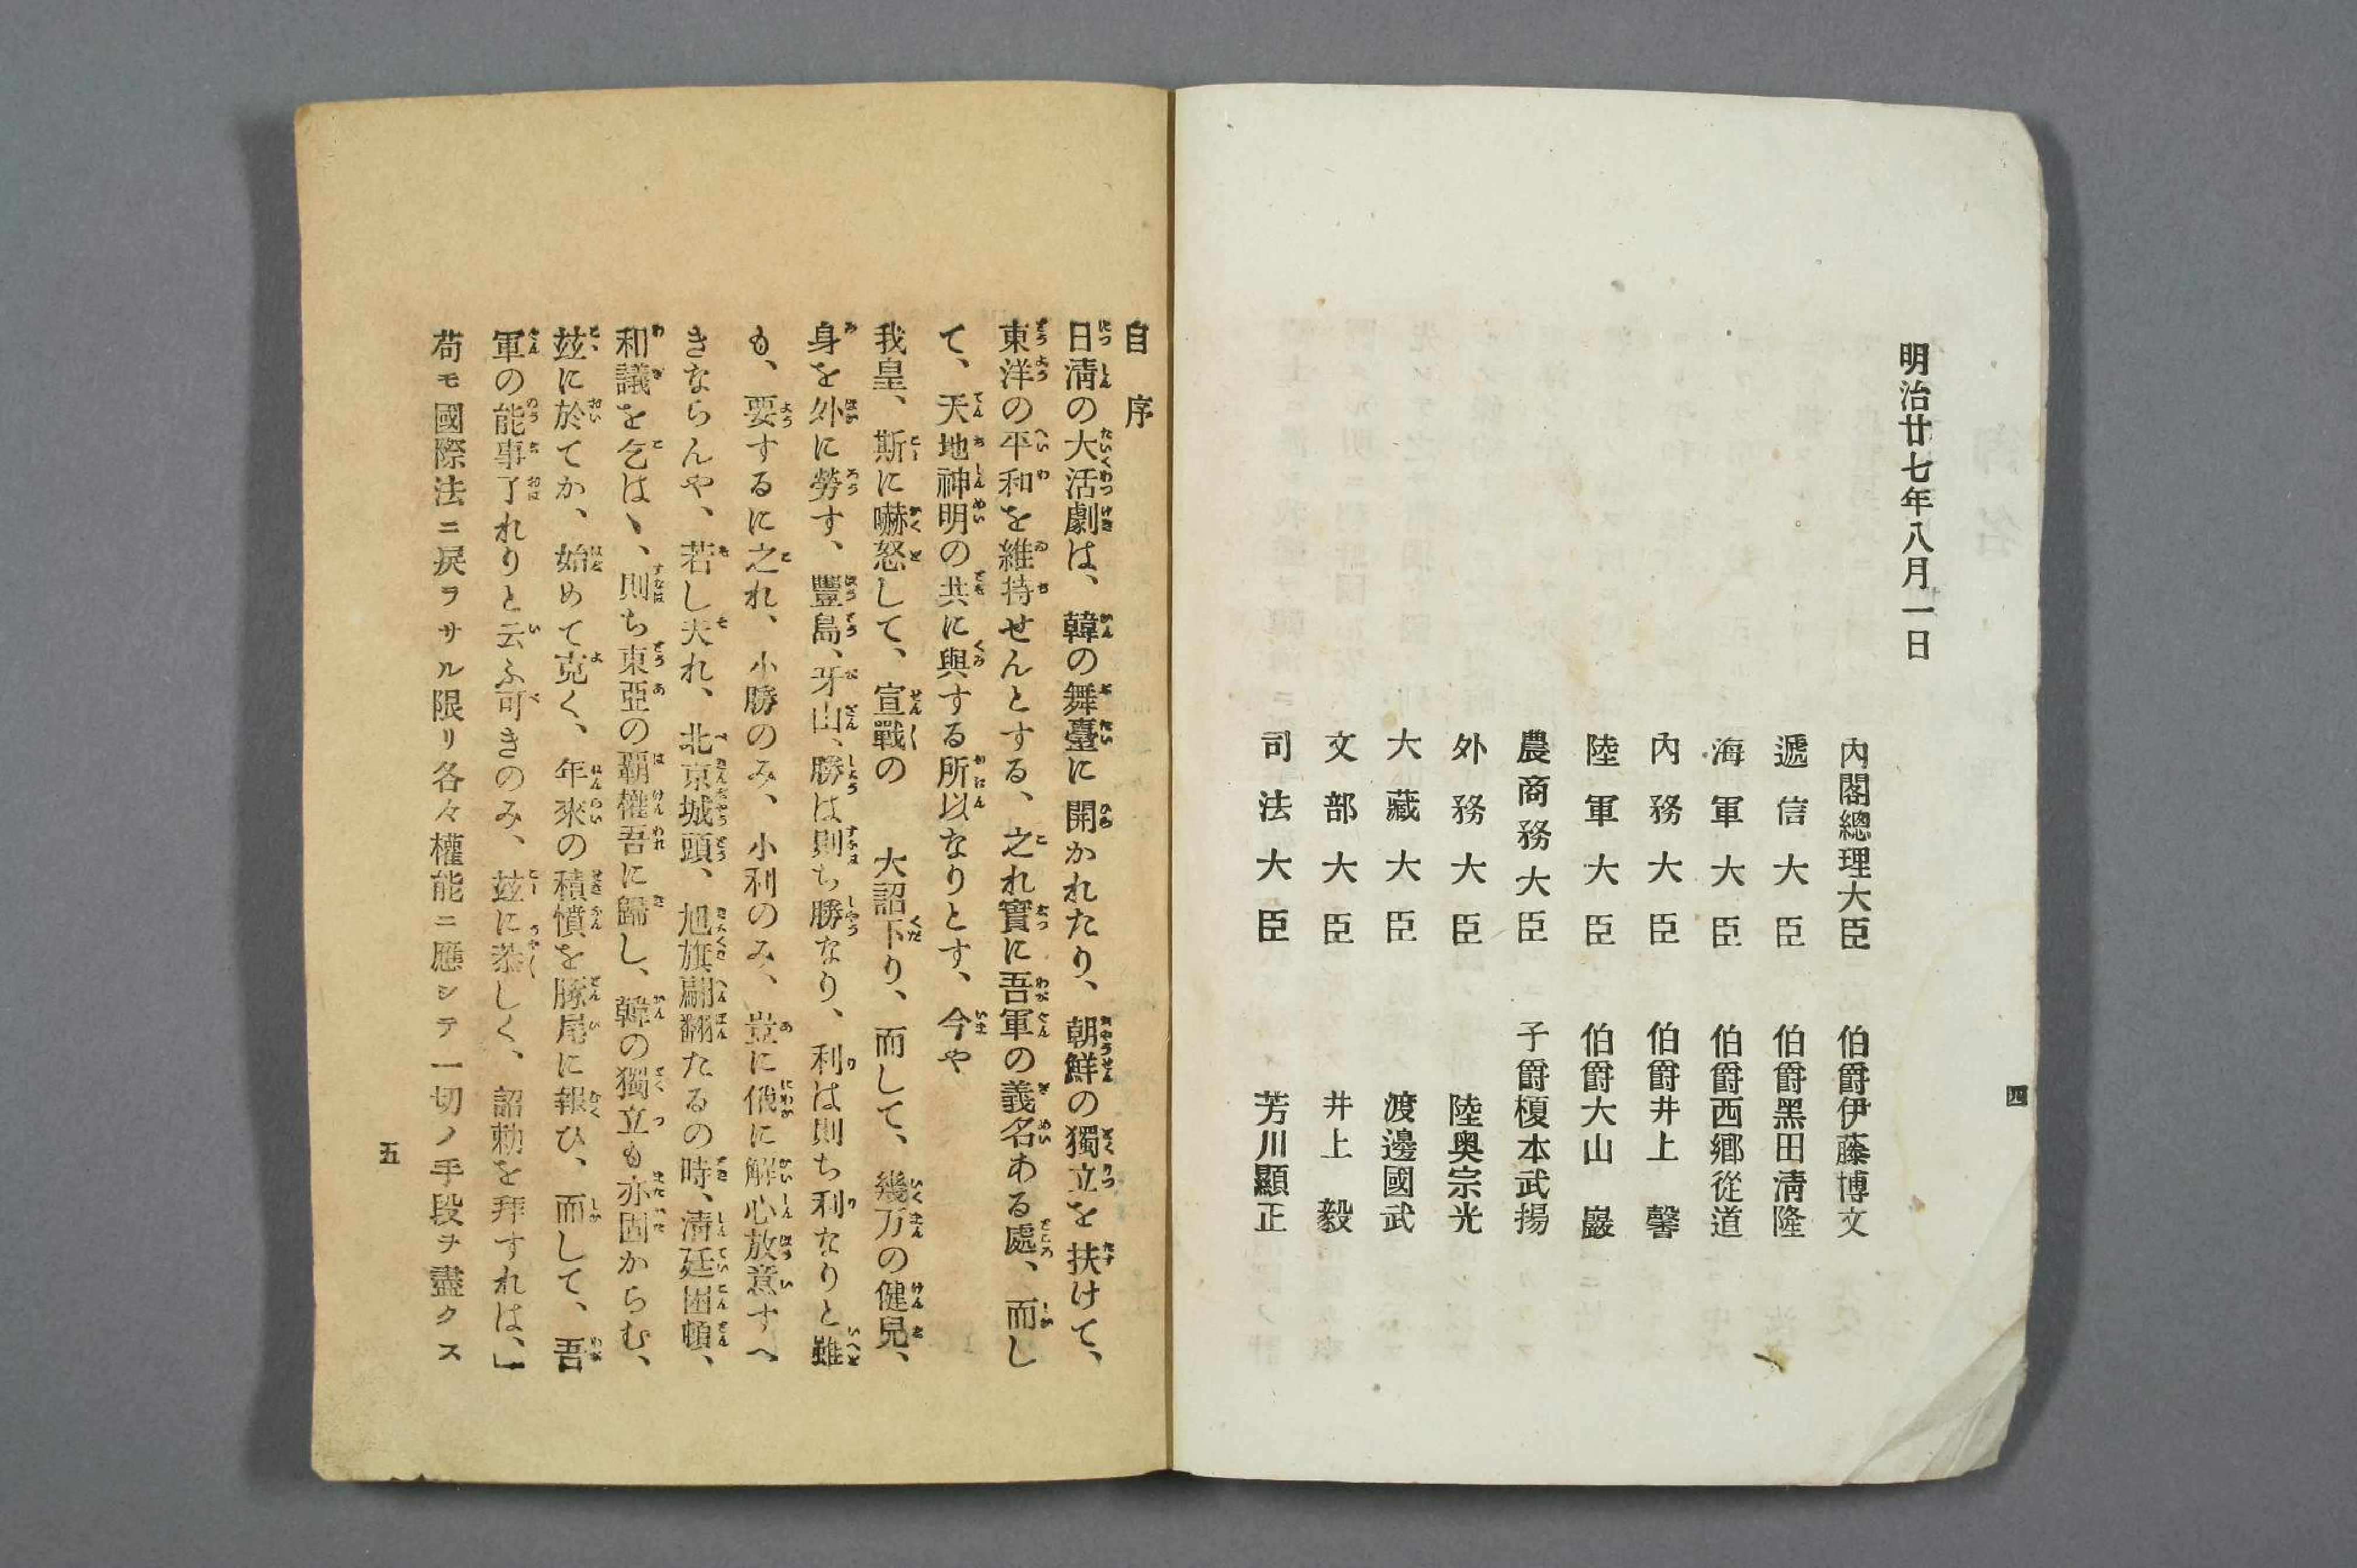 四
明治廿七年八月一日
內閣總理大臣 伯爵伊藤博文
遞信大臣 伯爵黑田淸隆
海軍大臣 伯爵西鄕從道
內務大臣 伯爵井上馨
陸軍大臣 伯爵大山巖
農商務大臣 子爵榎本武揚
外務大臣 陸奥宗光
大藏大臣 渡邊國武
文部大臣 井上毅
司法大臣 芳川顯正
自序
日淸の大活劇は、韓の舞臺に開かれたり、朝鮮の獨立を扶けて、
東洋の平和を維持せんとする、之れ實に吾軍の義名ある處、而し
て、天地神明の共に與する所以なりとす、今や
我皇、斯に嚇怒して、宣戰の 大詔下り、而して、幾万の健兒、
身を外に勞す、豐島、牙山、勝は則ち勝なり、利は則ち利なりと雖
も、要するに之れ、小勝のみ、小利のみ、豈に俄に解心放意すへ
きならんや、若し夫れ、北京城頭、旭旗翩翻たるの時、淸廷困頓、
和議を乞はヽ、則ち東亞の覇權吾に歸し、韓の獨立も亦固からむ、
玆に於てか、始めて克く、年來の積憤を豚尾に報ひ、而して、吾
軍の能事了れりと云ふ可きのみ、玆に恭しく、詔勅を拜すれは、」
苟モ國際法ニ戾ラサル限リ各々權能ニ應シテ一切ノ手段ヲ盡クス
五